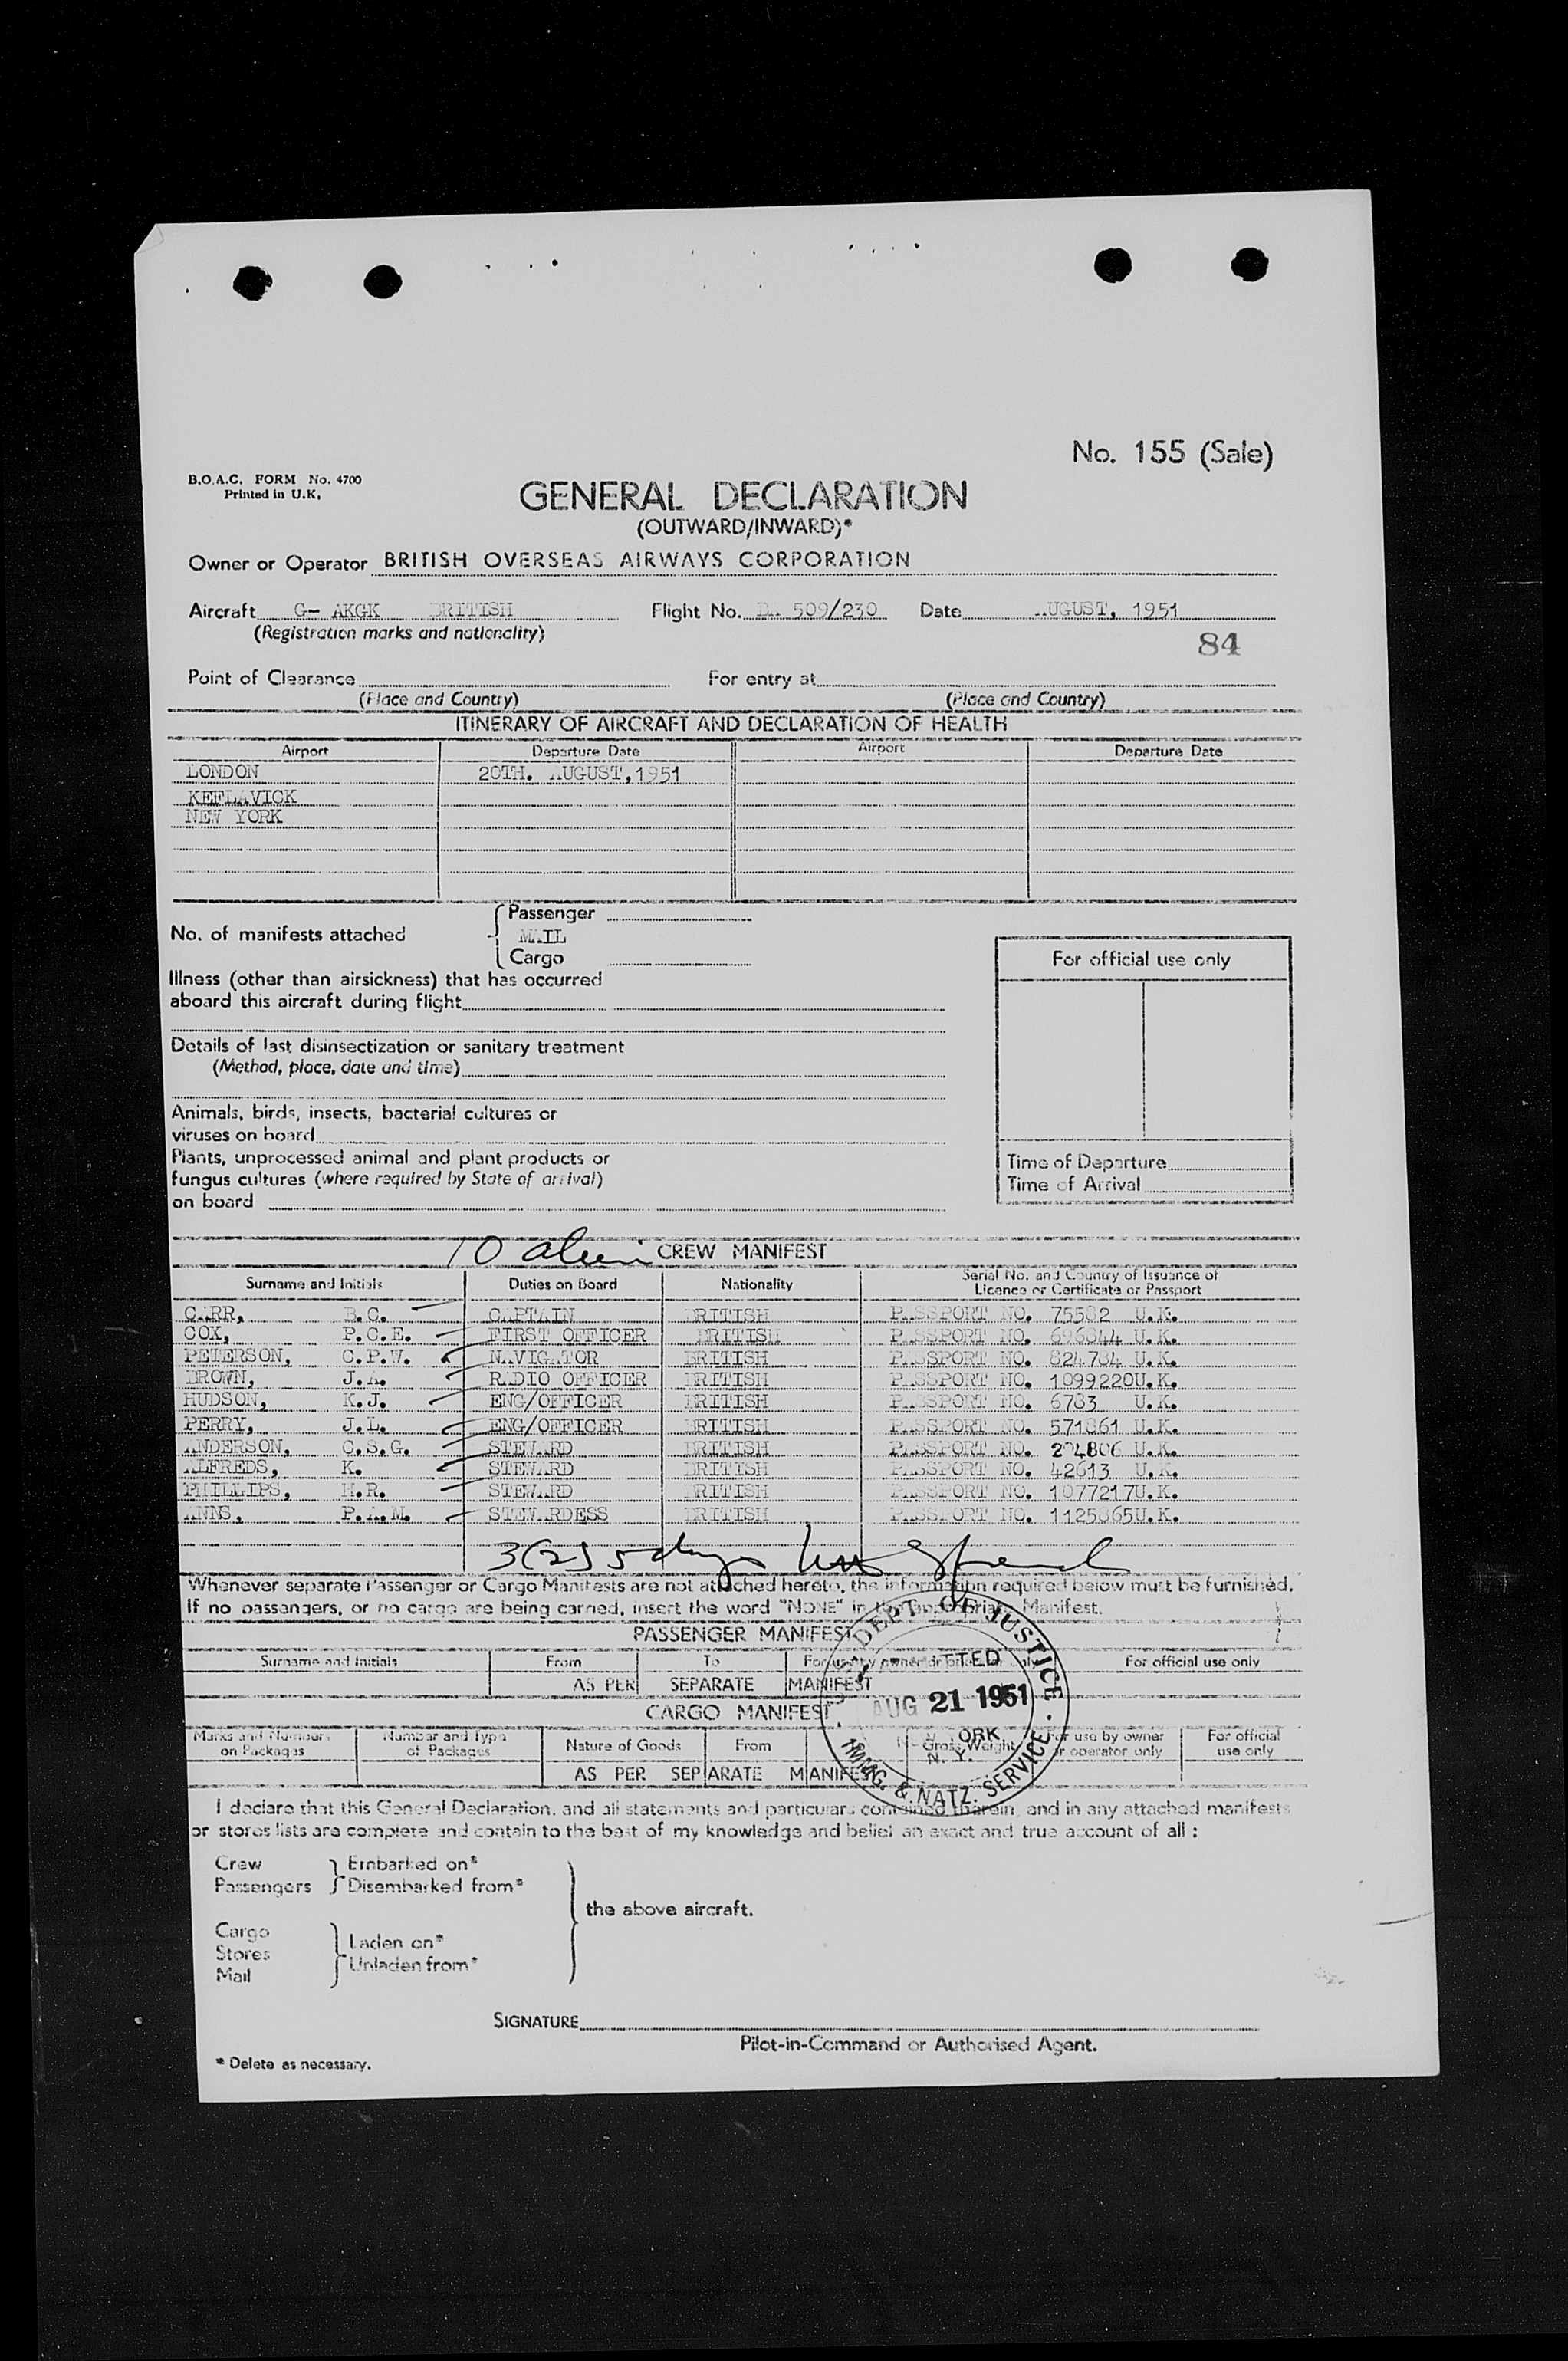 No. 155 (Sale)
B.O.A.C. FORM No. 4700
Printed in U.K.
GENERAL DECLARATION
(OUTWARD/INWARD)*
Owner or Operator BRITISH OVERSEAS AIRWAYS CORPORATION
Aircraft G- AKGK BRITISH Flight No. BA 509/230 Date AUGUST, 1951
(Registration marks and nationality)
84
Point of Clearance For entry at
(Place and Country) (Place and Country)
ITINERARY OF AIRCRAFT AND DECLARATION OF HEALTH
Airport Departure Date Airport Departure Date
LONDON 20TH. AUGUST, 1951
KEFLAVICK
NEW YORK
Passenger
No. of manifests attached MAIL
Cargo
For official use only
Illness (other than airsickness) that has occurred
aboard this aircraft during flight
Details of last disinsectization or sanitary treatment
(Method, place, date and time)
Animals, birds, insects, bacterial cultures or
viruses on board
Plants, unprocessed animal and plant products or
fungus cultures (where required by State of arrival)
on board
Time of Departure
Time of Arrival
10 alien CREW MANIFEST
Surname and Initials Duties on Board Nationality Serial No. and Country of Issuance of
Licence or Certificate or Passport
CARR, B.C. CAPTAIN BRITISH PASSPORT NO. 75582 U.K.
COX, P.C.E. FIRST OFFICER BRITISH PASSPORT NO. 696844 U.K.
PETERSON, C.P.W. NAVIGATOR BRITISH PASSPORT NO. 824784 U.K.
BROWN, J.A. RADIO OFFICER BRITISH PASSPORT NO. 1099220U.K.
HUDSON, K.J. ENG/OFFICER BRITISH PASSPORT NO. 6783 U.K.
PERRY, J.L. ENG/OFFICER BRITISH PASSPORT NO. 571861 U.K.
ANDERSON, C.S.G. STEWARD BRITISH PASSPORT NO. U.K.
ALFREDS, K. STEWARD BRITISH PASSPORT NO. 42613 U.K.
PHILLIPS, H.R. STEWARD BRITISH PASSPORT NO. 1077217U.K.
ANNS, P.A.M. STEWARDESS BRITISH PASSPORT NO. 1125865U.K.
3(2) 5 days
Whenever separate Passenger or Cargo Manifests are not attached hereto, the information required below must be furnished.
If no passengers, or no cargo are being carried, insert the word "NONE" in the appropriate Manifest.
PASSENGER MANIFEST
Surname and Initials From To For use by owner or operator only For official use only
AS PER SEPARATE MANIFEST
CARGO MANIFEST
Marks and Numbers on Packages Number and Type of Packages Nature of Goods From Gross Weight For use by owner or operator only For official use only
AS PER SEPARATE MANIFEST
DEPT OF JUSTICE
AUG 21 1951
N. Y.
IMMG. & NATZ. SERVICE
I declare that this General Declaration, and all statements and particulars contained therein, and in any attached manifests
or stores lists are complete and contain to the best of my knowledge and belief an exact and true account of all :
Crew Embarked on*
Passengers Disembarked from*
the above aircraft.
Cargo
Stores Laden on*
Mail Unladen from*
SIGNATURE
Pilot-in-Command or Authorised Agent.
* Delete as necessary.